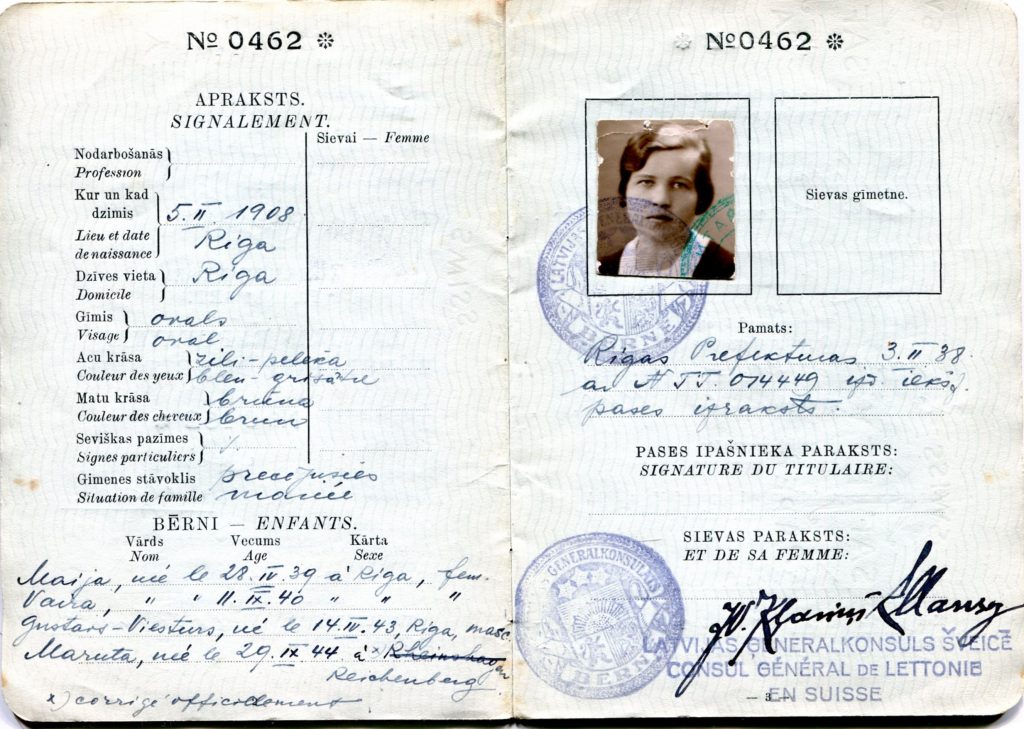 № 0462 ❊
APRAKSTS.
SIGNALEMENT.
Sievai — Femme
Nodarbošanās
Profession
Kur un kad
dzimis
5. II 1908
Lieu et date
de naissance
Riga
Dzīves vieta
Domicile
Riga
Ģimis
Visage
orals
oral
Acu krāsa
Couleur des yeux
zili-pelēka
bleu-grisâtre
Matu krāsa
Couleur des cheveux
brūna
brun
Seviškas pazīmes
Signes particuliers
Ģimenes stāvoklis
Situation de famille
precējusies
mariée
BĒRNI — ENFANTS.
Vārds Vecums Kārta
Nom Age Sexe
Maija, né le 28. IV. 39 à Riga, fem.
Vaira, " " 11. IX. 40 " " "
Gustavs-Viesturs, né le 14. IV. 43, Riga, masc
Maruta, né le 29. IX 44 à x)
Reichenberg
x) corrigé officiellement
№ 0462 ❊
Sievas ģīmetne.
LATVIJAS
BERNE
Pamats:
Rīgas Prefektūras 3. II 38.
ar N TT. 014449 izd. iekš.
pases izraksts.
PASES IPAŠNIEKA PARAKSTS:
SIGNATURE DU TITULAIRE:
SIEVAS PARAKSTS:
ET DE SA FEMME:
ĢENERALKONSULS
BERNE
LATVIJAS ĢENERALKONSULS ŠVEICĒ
CONSUL GÉNÉRAL DE LETTONIE
EN SUISSE
— 3 —